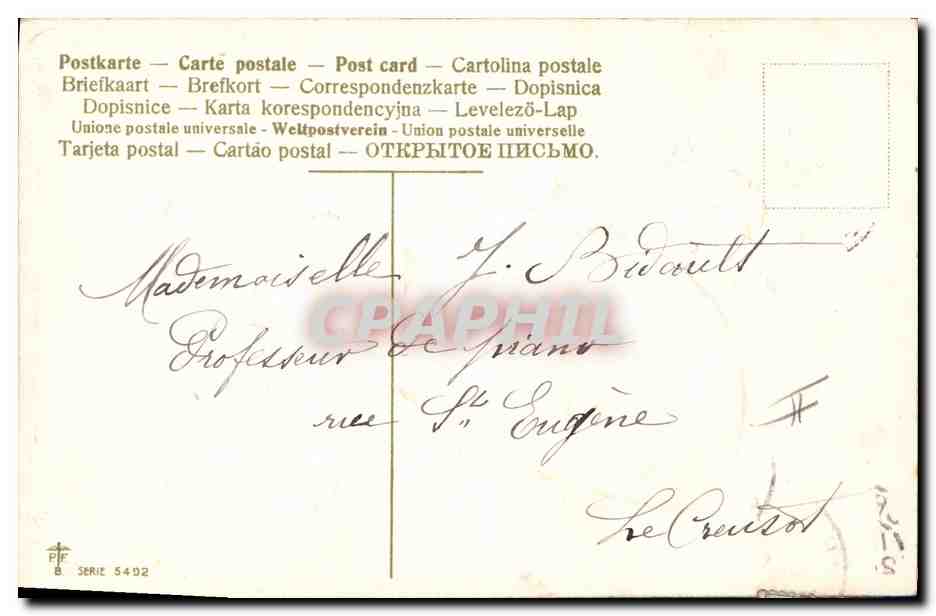 Postkarte — Carte postale — Post card — Cartolina postale
Briefkaart — Brefkort — Correspondenzkarte — Dopisnica
Dopisnice — Karta korespondencyjna — Levelező-Lap
Unione postale universale - Weltpostverein - Union postale universelle
Tarjeta postal — Cartão postal — ОТКРЫТОЕ ПИСЬМО.
Mademoiselle J. Bidault
CPAPHIL
Professeur de piano
rue St Eugène
II
Le Creusot
PF
B. SERIE 5492